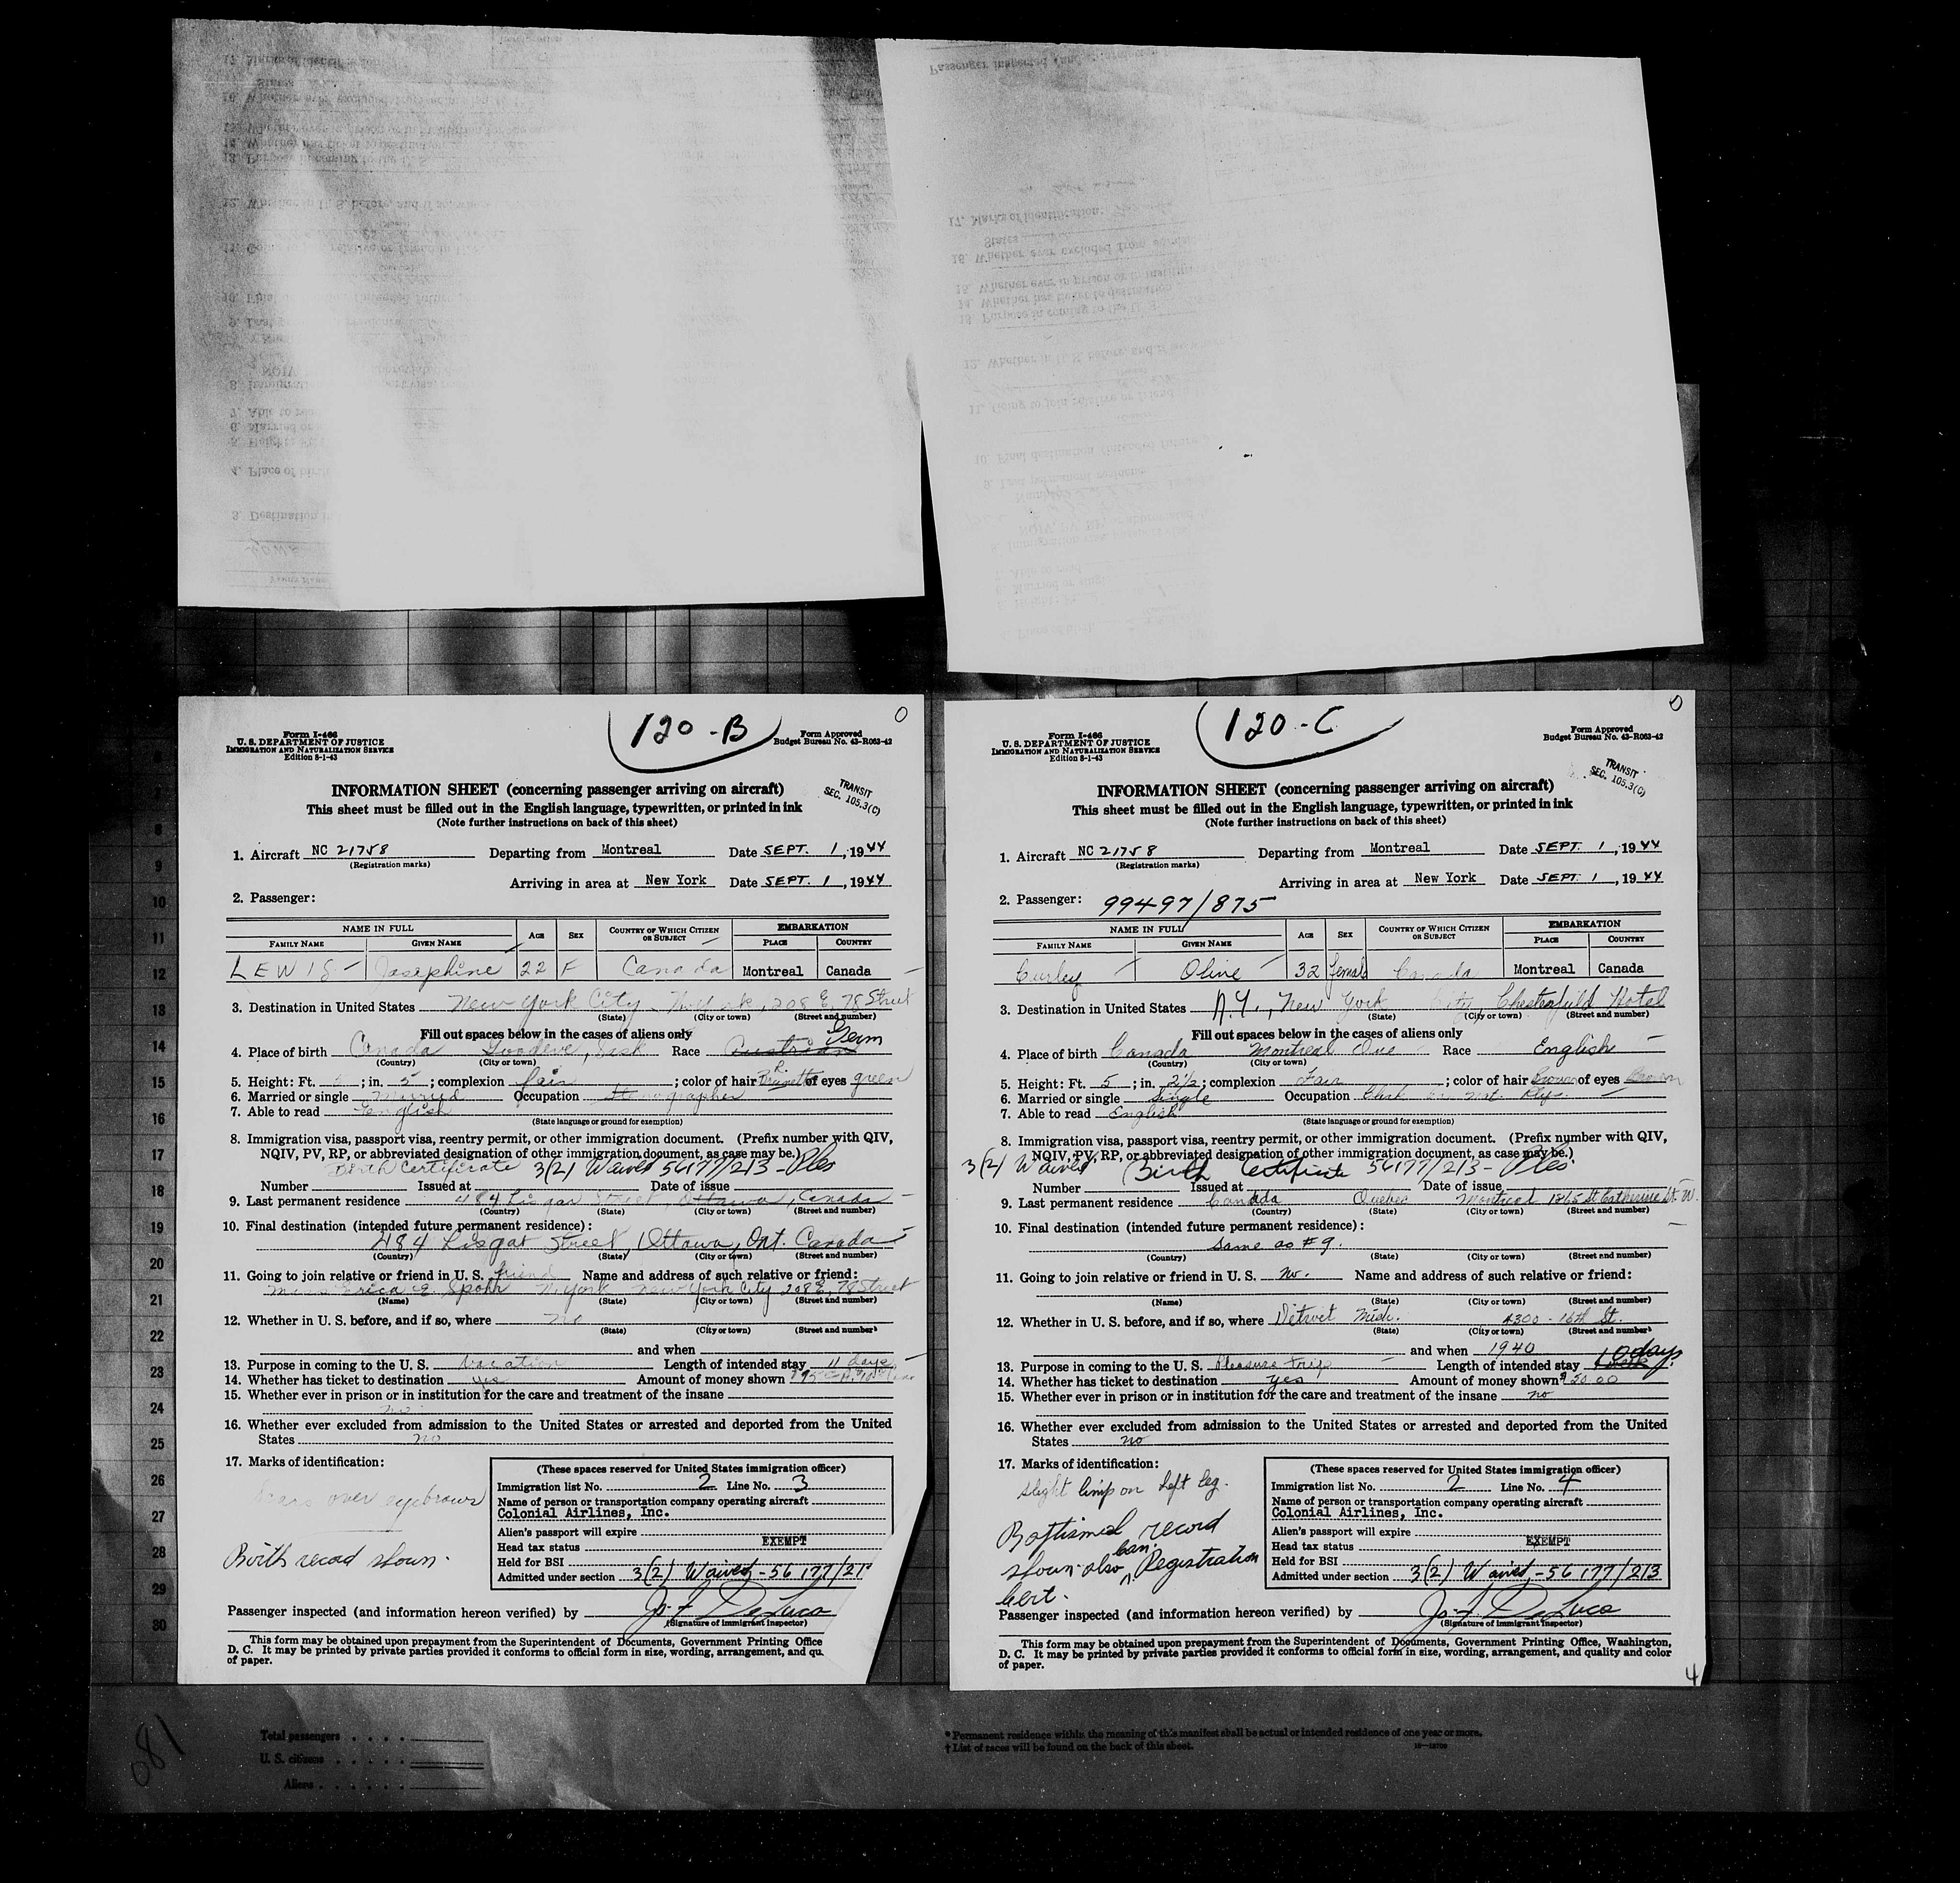 120-B
0
Form I-466
U. S. DEPARTMENT OF JUSTICE
IMMIGRATION AND NATURALIZATION SERVICE
Edition 8-1-43
Form Approved
Budget Bureau No. 43-R063-42
INFORMATION SHEET (concerning passenger arriving on aircraft)
TRANSIT
SEC. 105.3(C)
This sheet must be filled out in the English language, typewritten, or printed in ink
(Note further instructions on back of this sheet)
1. Aircraft NC 21758 Departing from Montreal Date SEPT. 1, 1944
(Registration marks)
Arriving in area at New York Date SEPT. 1, 1944
2. Passenger:
NAME IN FULL AGE SEX COUNTRY OF WHICH CITIZEN OR SUBJECT EMBARKATION
FAMILY NAME GIVEN NAME PLACE COUNTRY
LEWIS Josephine 22 F Canada Montreal Canada
3. Destination in United States New York City N.York, 208 E. 78 Street
(State) (City or town) (Street and number)
Fill out spaces below in the cases of aliens only
Germ
4. Place of birth Canada Goodeve, Sask Race Austrian
(Country) (City or town)
5. Height: Ft. ; in. 5 ; complexion fair ; color of hair Brunette of eyes green
6. Married or single Married Occupation Stenographer
7. Able to read English
(State language or ground for exemption)
8. Immigration visa, passport visa, reentry permit, or other immigration document. (Prefix number with QIV,
NQIV, PV, RP, or abbreviated designation of other immigration document, as case may be.)
Birth Certificate 3(2) Waived 56177/213 - Ples
Number Issued at Date of issue
9. Last permanent residence 484 Lisgar Street, Ottawa, Canada
(Country) (State) (City or town) (Street and number)
10. Final destination (intended future permanent residence):
484 Lisgar Street Ottawa, Ont. Canada
(Country) (State) (City or town) (Street and number)
11. Going to join relative or friend in U. S. friend Name and address of such relative or friend:
Miss Erica E. Spohr N.York New York City 208 E. 78 Street
(Name) (State) (City or town) (Street and number)
12. Whether in U. S. before, and if so, where No
(State) (City or town) (Street and number)
and when
13. Purpose in coming to the U. S. Vacation Length of intended stay 11 days
14. Whether has ticket to destination yes Amount of money shown
15. Whether ever in prison or in institution for the care and treatment of the insane
no
16. Whether ever excluded from admission to the United States or arrested and deported from the United
States no
17. Marks of identification:
Scars over eyebrows
Birth record shown.
(These spaces reserved for United States immigration officer)
Immigration list No. 2 Line No. 3
Name of person or transportation company operating aircraft
Colonial Airlines, Inc.
Alien's passport will expire
Head tax status EXEMPT
Held for BSI
Admitted under section 3(2) Waived - 56177/21
Passenger inspected (and information hereon verified) by Jo. F. DeLuca
(Signature of immigrant inspector)
This form may be obtained upon prepayment from the Superintendent of Documents, Government Printing Office
D. C. It may be printed by private parties provided it conforms to official form in size, wording, arrangement, and qu
of paper.
120-C
0
Form I-466
U. S. DEPARTMENT OF JUSTICE
IMMIGRATION AND NATURALIZATION SERVICE
Edition 8-1-43
Form Approved
Budget Bureau No. 43-R063-42
INFORMATION SHEET (concerning passenger arriving on aircraft)
TRANSIT
SEC. 105.3(C)
This sheet must be filled out in the English language, typewritten, or printed in ink
(Note further instructions on back of this sheet)
1. Aircraft NC 21758 Departing from Montreal Date SEPT. 1, 1944
(Registration marks)
Arriving in area at New York Date SEPT. 1, 1944
2. Passenger: 99497/875
NAME IN FULL AGE SEX COUNTRY OF WHICH CITIZEN OR SUBJECT EMBARKATION
FAMILY NAME GIVEN NAME PLACE COUNTRY
Curley Olive 32 female Canada Montreal Canada
3. Destination in United States N.Y., New York City, Chesterfield Hotel
(State) (City or town) (Street and number)
Fill out spaces below in the cases of aliens only
4. Place of birth Canada Montreal Que Race English
(Country) (City or town)
5. Height: Ft. 5 ; in. 2½ ; complexion Fair ; color of hair Brown of eyes Brown
6. Married or single Single Occupation Clerk
7. Able to read English
(State language or ground for exemption)
8. Immigration visa, passport visa, reentry permit, or other immigration document. (Prefix number with QIV,
NQIV, PV, RP, or abbreviated designation of other immigration document, as case may be.)
3(2) Waived Birth Certificate 56177/213 - Ples
Number Issued at Date of issue
9. Last permanent residence Canada Quebec Montreal 1865 St. Catherine St. W.
(Country) (State) (City or town) (Street and number)
10. Final destination (intended future permanent residence):
Same as #9.
(Country) (State) (City or town) (Street and number)
11. Going to join relative or friend in U. S. No. Name and address of such relative or friend:
(Name) (State) (City or town) (Street and number)
12. Whether in U. S. before, and if so, where Detroit Mich. 4300 - 16th St.
(State) (City or town) (Street and number)
and when 1940
13. Purpose in coming to the U. S. Pleasure trip Length of intended stay 10 days
14. Whether has ticket to destination yes Amount of money shown
15. Whether ever in prison or in institution for the care and treatment of the insane no
16. Whether ever excluded from admission to the United States or arrested and deported from the United
States no
17. Marks of identification:
Slight limp on left leg.
Baptismal record
shown also Can. Registration
Cert.
(These spaces reserved for United States immigration officer)
Immigration list No. 2 Line No. 4
Name of person or transportation company operating aircraft
Colonial Airlines, Inc.
Alien's passport will expire
Head tax status EXEMPT
Held for BSI
Admitted under section 3(2) Waived - 56177/213
Passenger inspected (and information hereon verified) by Jo. F. DeLuca
(Signature of immigrant inspector)
This form may be obtained upon prepayment from the Superintendent of Documents, Government Printing Office, Washington,
D. C. It may be printed by private parties provided it conforms to official form in size, wording, arrangement, and quality and color
of paper.
4
Total passengers
U. S. citizens
Aliens
* Permanent residence within the meaning of this manifest shall be actual or intended residence of one year or more.
† List of races will be found on the back of this sheet.